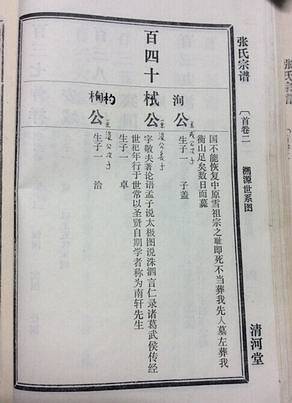 张氏宗谱
〔首卷二〕
溯源世系图
清河堂
国不能恢复中原雪祖宗之耻即死不当葬我先人墓左葬我
衡山足矣数日而薨
洵公
生子一 子盖
百四十
栻公
字敬夫著论语孟子说太极图说洙泗言仁录诸葛武侯传经
世纪年行于世常以圣贤自期学者称为南轩先生
生子一 卓
杓
公
生子一 洽
张氏宗谱